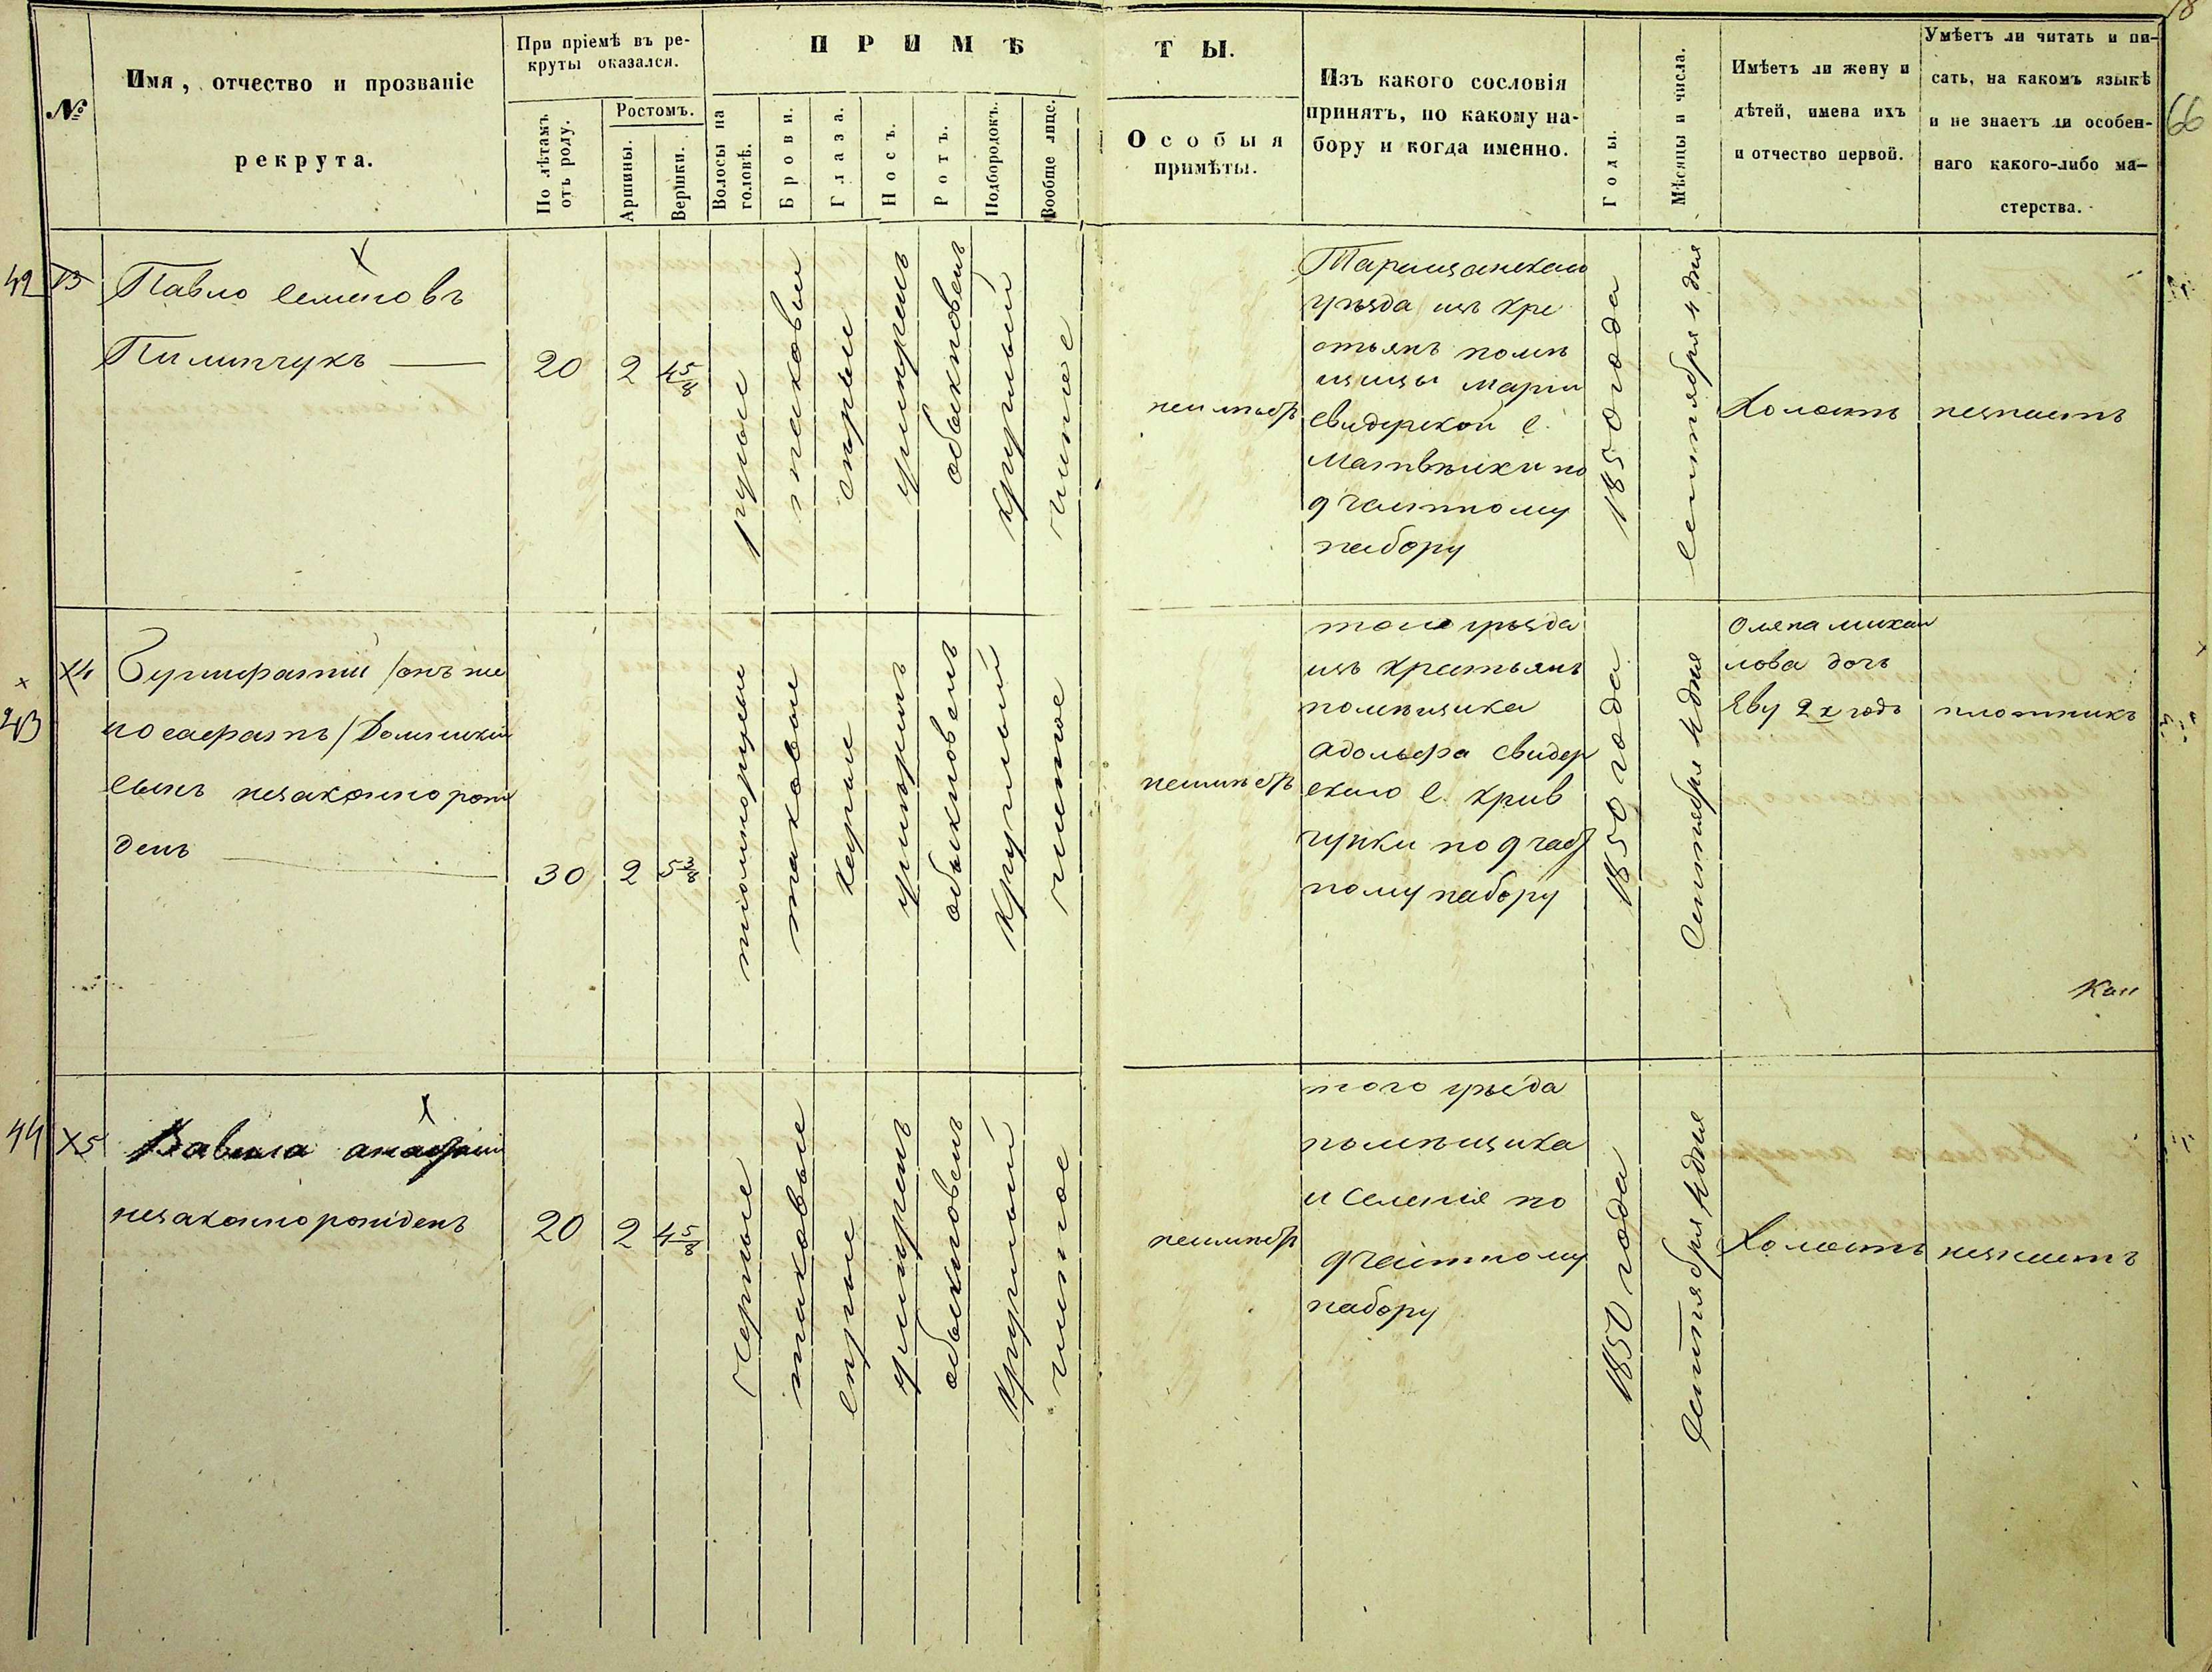 №
Имя, отчество и прозваніе
рекрута.
При пріемѣ въ ре-
круты оказался.
По лѣтамъ
отъ роду.
Ростомъ.
Аршины.
Вершки.
ПРИМѢ
Волосы на
головѣ.
Брови.
Глаза.
Носъ.
Ротъ.
Подбородокъ.
Вообще лице.
ТЫ.
Особыя
примѣты.
Изъ какого сословія
принятъ, по какому на-
бору и когда именно.
Годы.
Мѣсяцы и числа.
Имѣетъ ли жену и
дѣтей, имена ихъ
и отчество первой.
Умѣетъ ли читать и пи-
сать, на какомъ языкѣ
и не знаетъ ли особен-
наго какого-либо ма-
стерства.
66
42
Павло Семеновъ
Пилипчукъ
20
2
4 5/8
русые
таковыи
сѣрыи
умѣренъ
обыкновенъ
круглый
чистое
неимѣетъ
Таращанскаго
уѣзда изъ кре
стьянъ помѣ
щицы Маріи
Свидерской с.
Матвѣихи по
9 частному
набору
1850 года
Сентября 4 дня
Холостъ
незнаетъ
43
Сынъ незаконнорож
денъ
30
2
5 3/8
темнорусые
таковые
каріе
умѣренъ
обыкновенъ
круглый
чистое
неимѣетъ
того уѣзда
изъ крестьянъ
помѣщика
Адольфа Свидер
скаго с. Крив
чунки по 9 част
ному набору
1850 года
Сентября 4 дня
Олена Михаи
лова дочь
Еву 2х годъ
плотникъ
Кан
44
Х5
Вавила
незаконнорожденъ
20
2
4 5/8
Черные
таковые
сѣрые
умѣренъ
обыкновенъ
круглый
чистое
неимѣетъ
того уѣзда
помѣщика
и селенія по
9 частному
набору
1850 года
Сентября 4 дня
Холостъ
незнаетъ